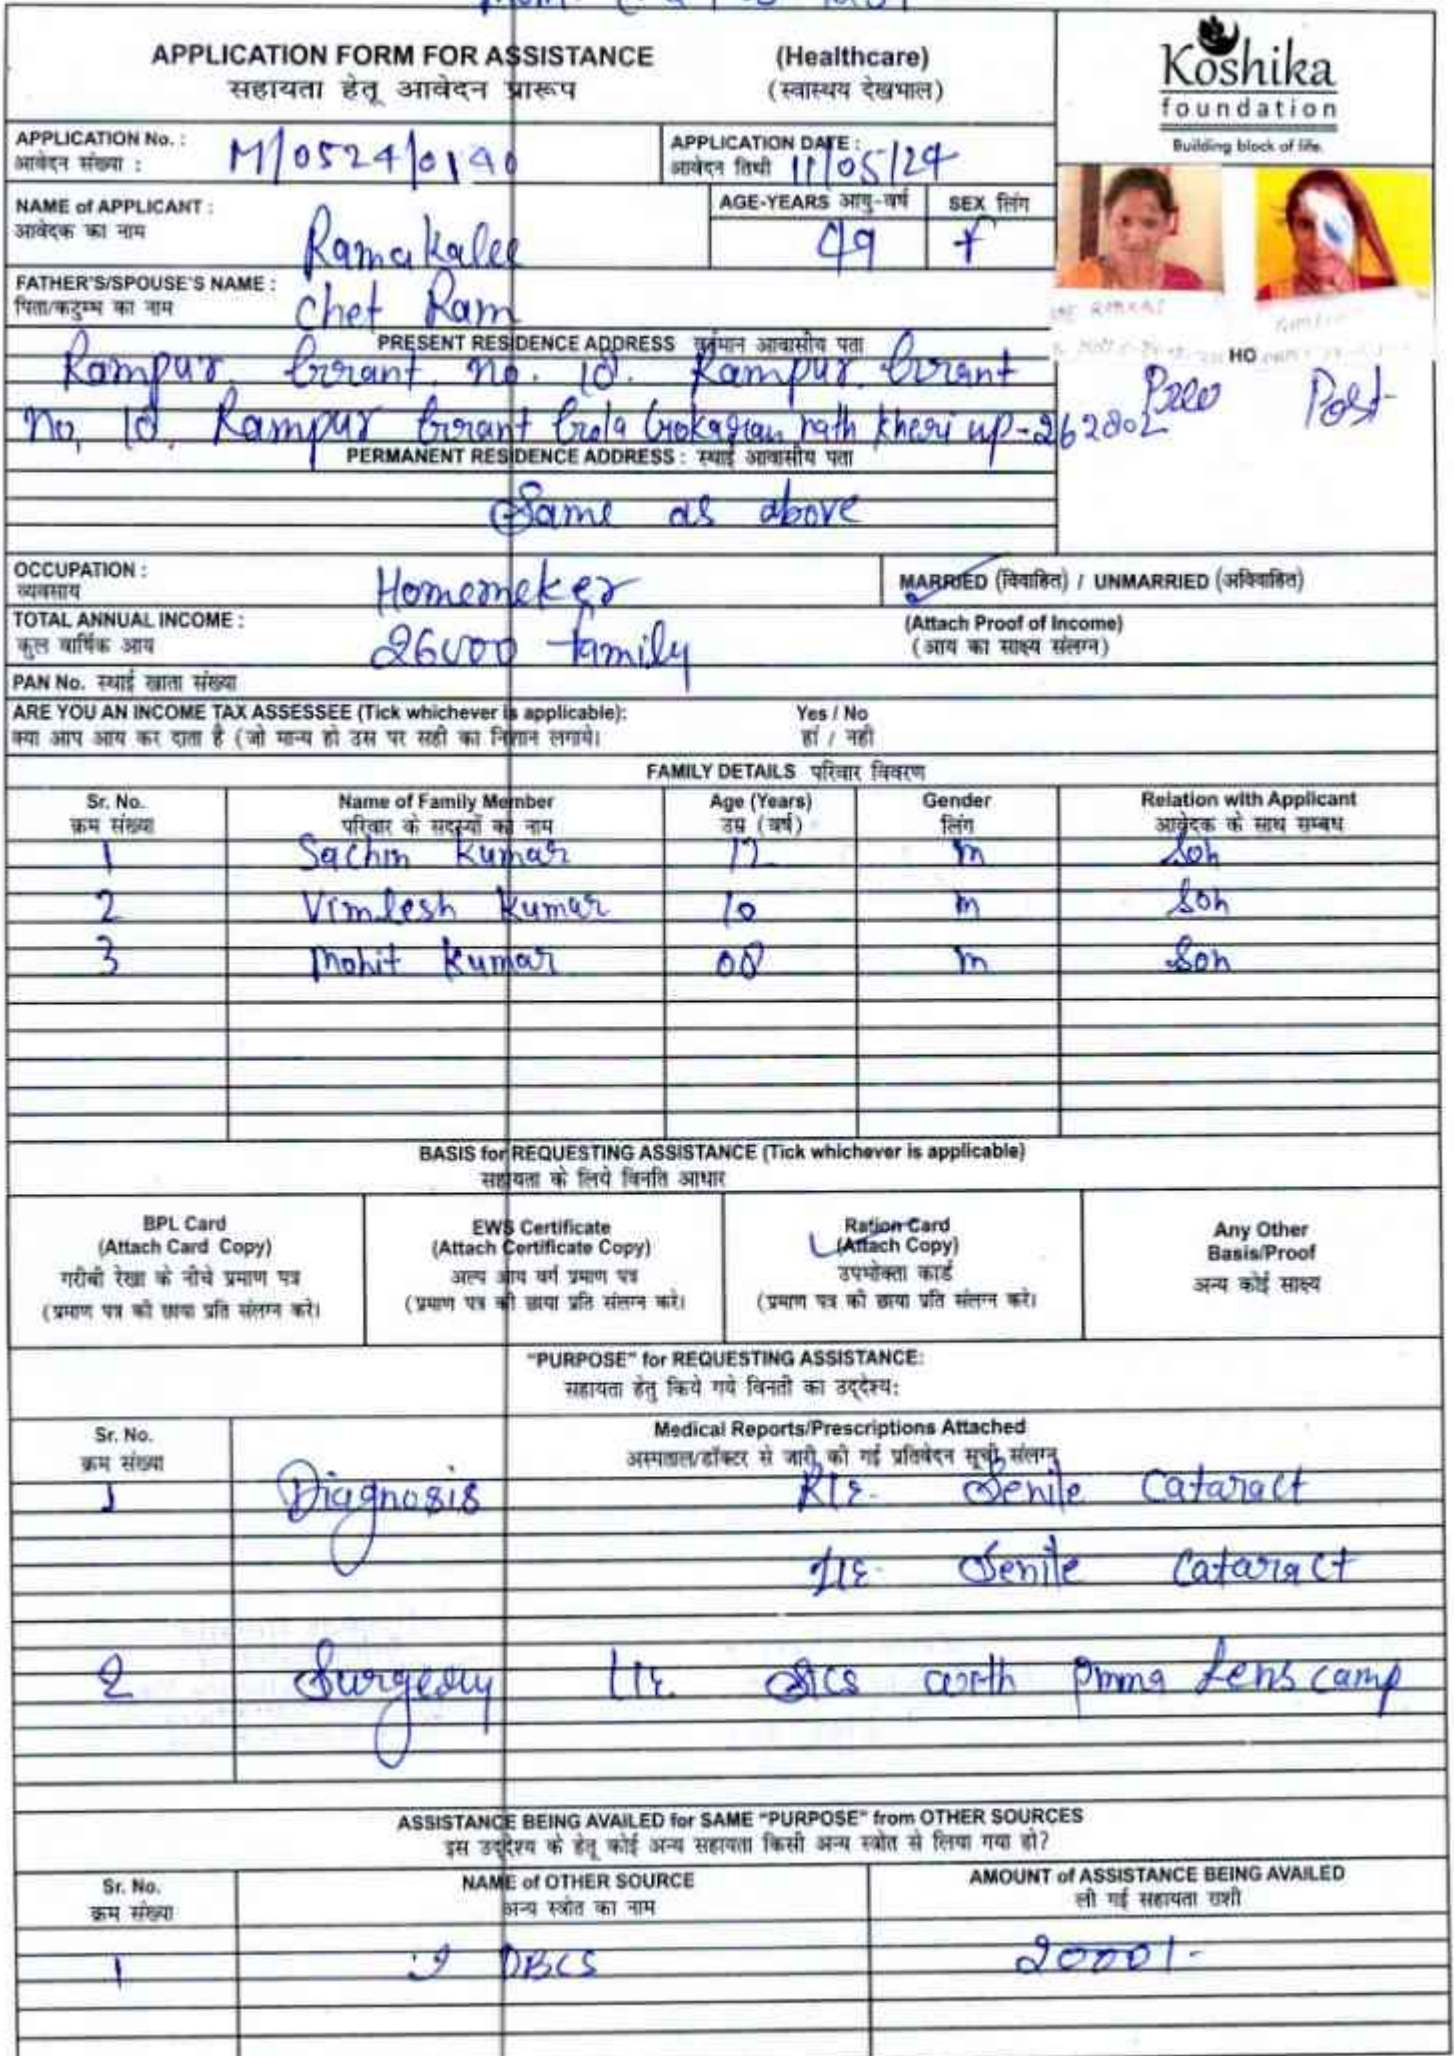 APPLICATION FORM FOR ASSISTANCE (Healthcare)
सहायता हेतू आवेदन प्रारूप (स्वास्थय देखभाल)
Koshika
foundation
Building block of life.
APPLICATION No. : M/0524/0190
आवेदन संख्या :
APPLICATION DATE : 11/05/24
आवेदन तिथी
NAME of APPLICANT : Ramakalee
आवेदक का नाम
AGE-YEARS आयु-वर्ष 49
SEX लिंग f
FATHER'S/SPOUSE'S NAME : Chet Ram
पिता/कटुम्ब का नाम
PRESENT RESIDENCE ADDRESS वर्तमान आवासीय पता
HO
Rampur no. Rampur
no, Rampur nath kheri up-262802
Post
PERMANENT RESIDENCE ADDRESS : स्थाई आवासीय पता
Same as above
OCCUPATION : Homemeker
व्यवसाय
MARRIED (विवाहित) / UNMARRIED (अविवाहित)
TOTAL ANNUAL INCOME : 26000 family
कुल वार्षिक आय
(Attach Proof of Income)
(आय का साक्ष्य संलग्न)
PAN No. स्थाई खाता संख्या
ARE YOU AN INCOME TAX ASSESSEE (Tick whichever is applicable): Yes / No
क्या आप आय कर दाता है (जो मान्य हो उस पर सही का निशान लगाये। हां / नही
FAMILY DETAILS परिवार विवरण
Sr. No. Name of Family Member Age (Years) Gender Relation with Applicant
क्रम संख्या परिवार के सदस्यों का नाम उम्र (वर्ष) लिंग आवेदक के साथ सम्बध
1 Sachin Kumar 12 m Son
2 Vimlesh Kumar 10 m Son
3 Mohit Kumar 08 m Son
BASIS for REQUESTING ASSISTANCE (Tick whichever is applicable)
सहायता के लिये विनति आधार
BPL Card
(Attach Card Copy)
गरीबी रेखा के नीचे प्रमाण पत्र
(प्रमाण पत्र की छाया प्रति संलग्न करे।
EWS Certificate
(Attach Certificate Copy)
अल्प आय वर्ग प्रमाण पत्र
(प्रमाण पत्र की छाया प्रति संलग्न करे।
Ration Card
(Attach Copy)
उपभोक्ता कार्ड
(प्रमाण पत्र की छाया प्रति संलग्न करे।
Any Other
Basis/Proof
अन्य कोई साक्ष्य
"PURPOSE" for REQUESTING ASSISTANCE:
सहायता हेतु किये गये विनती का उद्देश्य:
Sr. No. Medical Reports/Prescriptions Attached
क्रम संख्या अस्पताल/डॉक्टर से जारी की गई प्रतिवेदन सूची संलग्न
1 Diagnosis R/E- Senile Cataract
L/E- Senile Cataract
2 Surgery L/E. SICS with Pmma Lens camp
ASSISTANCE BEING AVAILED for SAME "PURPOSE" from OTHER SOURCES
इस उद्देश्य के हेतू कोई अन्य सहायता किसी अन्य स्त्रोत से लिया गया हो?
Sr. No. NAME of OTHER SOURCE AMOUNT of ASSISTANCE BEING AVAILED
क्रम संख्या अन्य स्त्रोत का नाम ली गई सहायता राशी
1 DBCS 2000/-